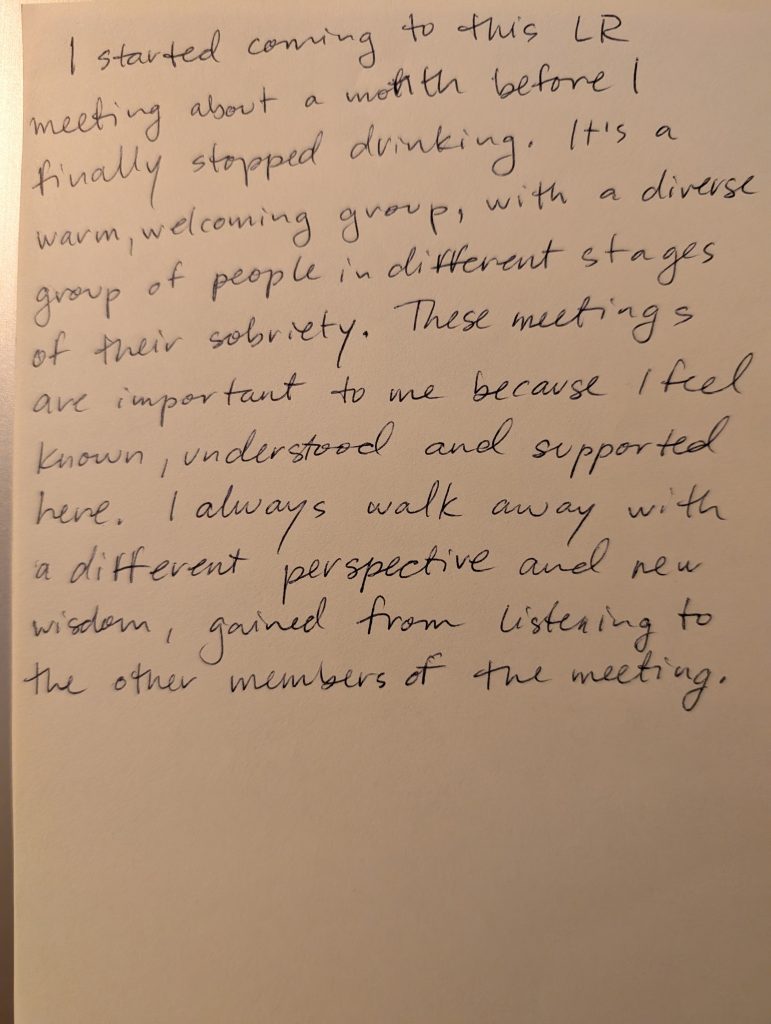 I started coming to this LR
meeting about a month before I
finally stopped drinking. It's a
warm, welcoming group, with a diverse
group of people in different stages
of their sobriety. These meetings
are important to me because I feel
known, understood and supported
here. I always walk away with
a different perspective and new
wisdom, gained from listening to
the other members of the meeting.